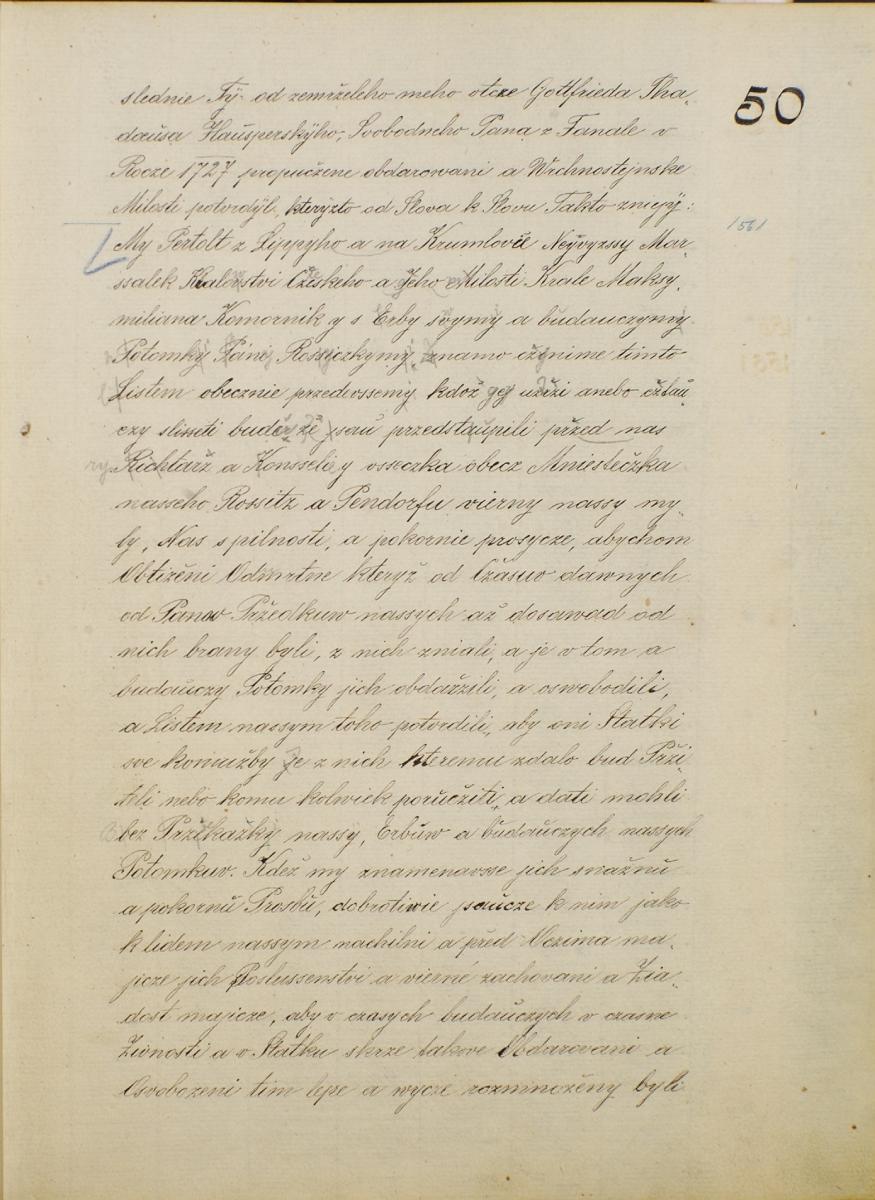 50
slednie Tÿ od zemrželeho meho otcze Gottfrieda Tha„
dæusa Hausperskÿho, Svobodneho Pana z Fanale v
Rocze 1727 propučzene obdarowani a Wrchnostejnske
Milosti potvrdÿl, kterÿzto od Slova k Slovu Takto znieyÿ:
1561
My Pertolt z Lippyho a na Krumlovie Neÿvyzssy Mar„
ssalek Kralovstvi Czeskeho a Jeho Milosti Krale Maksy„
miliana Komornik y s Erby svymy a budauczymy
Potomky Pani Rossiczkymy, znamo czynime timto
Listem obecznie przedevssemy kdož gej uzrži anebo cztau„
czy slisseti budau že jsau przedstaupili před nas
Richtarž a Konsseli y osseczka obecz Mniestečzka
nasseho Rossitz a Pendorfu vierny nassy my„
ly, Nas s pilnosti, a pokornie prosycze, abychom
Obtižéni Odmrtne kteryž od Čzasuw dawnych
od Panow Pržedkuw nassych až dosawad od
nich brany byli, z nich zniali, a je v tom a
budauczy Potomky jich obdaržili, a oswobodili,
a Listem nassym toho potvrdili, aby oni Statki
sve komužby ze z nich kteremu zdalo bud Prži„
teli nebo komu kolwiek poručžiti, a dati mohli
bez Pržekažky nassy, Erbuw a budauczych nassych
Potomkuv. Kdež my znamenavsse jich snažnú
a pokornú Prosbu, dobrotiwie jsaucze k nim jako
k lidem nassym nachilni a před Oczima ma„
jicze jich Poslussenstvi a vierné zachovani a Žia„
dost majicze, aby v czasych budauczych v czasne
Živnosti a v Statku skrze takove Obdarovani a
Osvobozeni tim lepe a wycze rozmnoženy byli